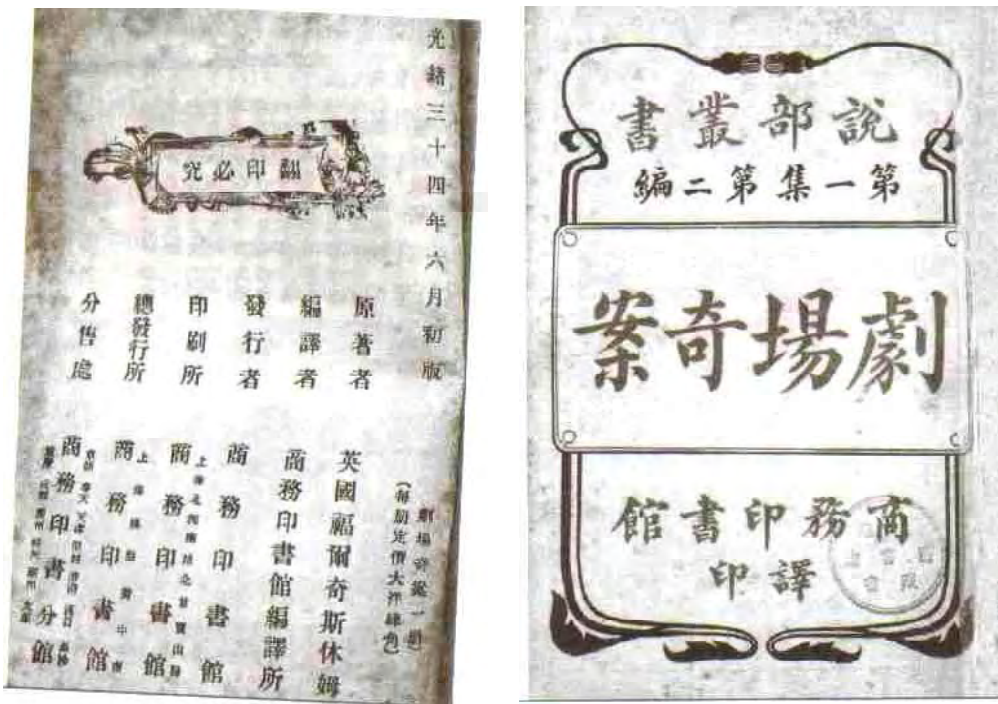 光緒三十四年六月初版
翻印必究
原著者 英國福爾奇斯休姆
編譯者 商務印書館編譯所
發行者 商務印書館
印刷所 商務印書館
總發行所 商務印書館
分售處 商務印書分館
說部叢書
第一集第二編
劇場奇案
商務印書館
譯印